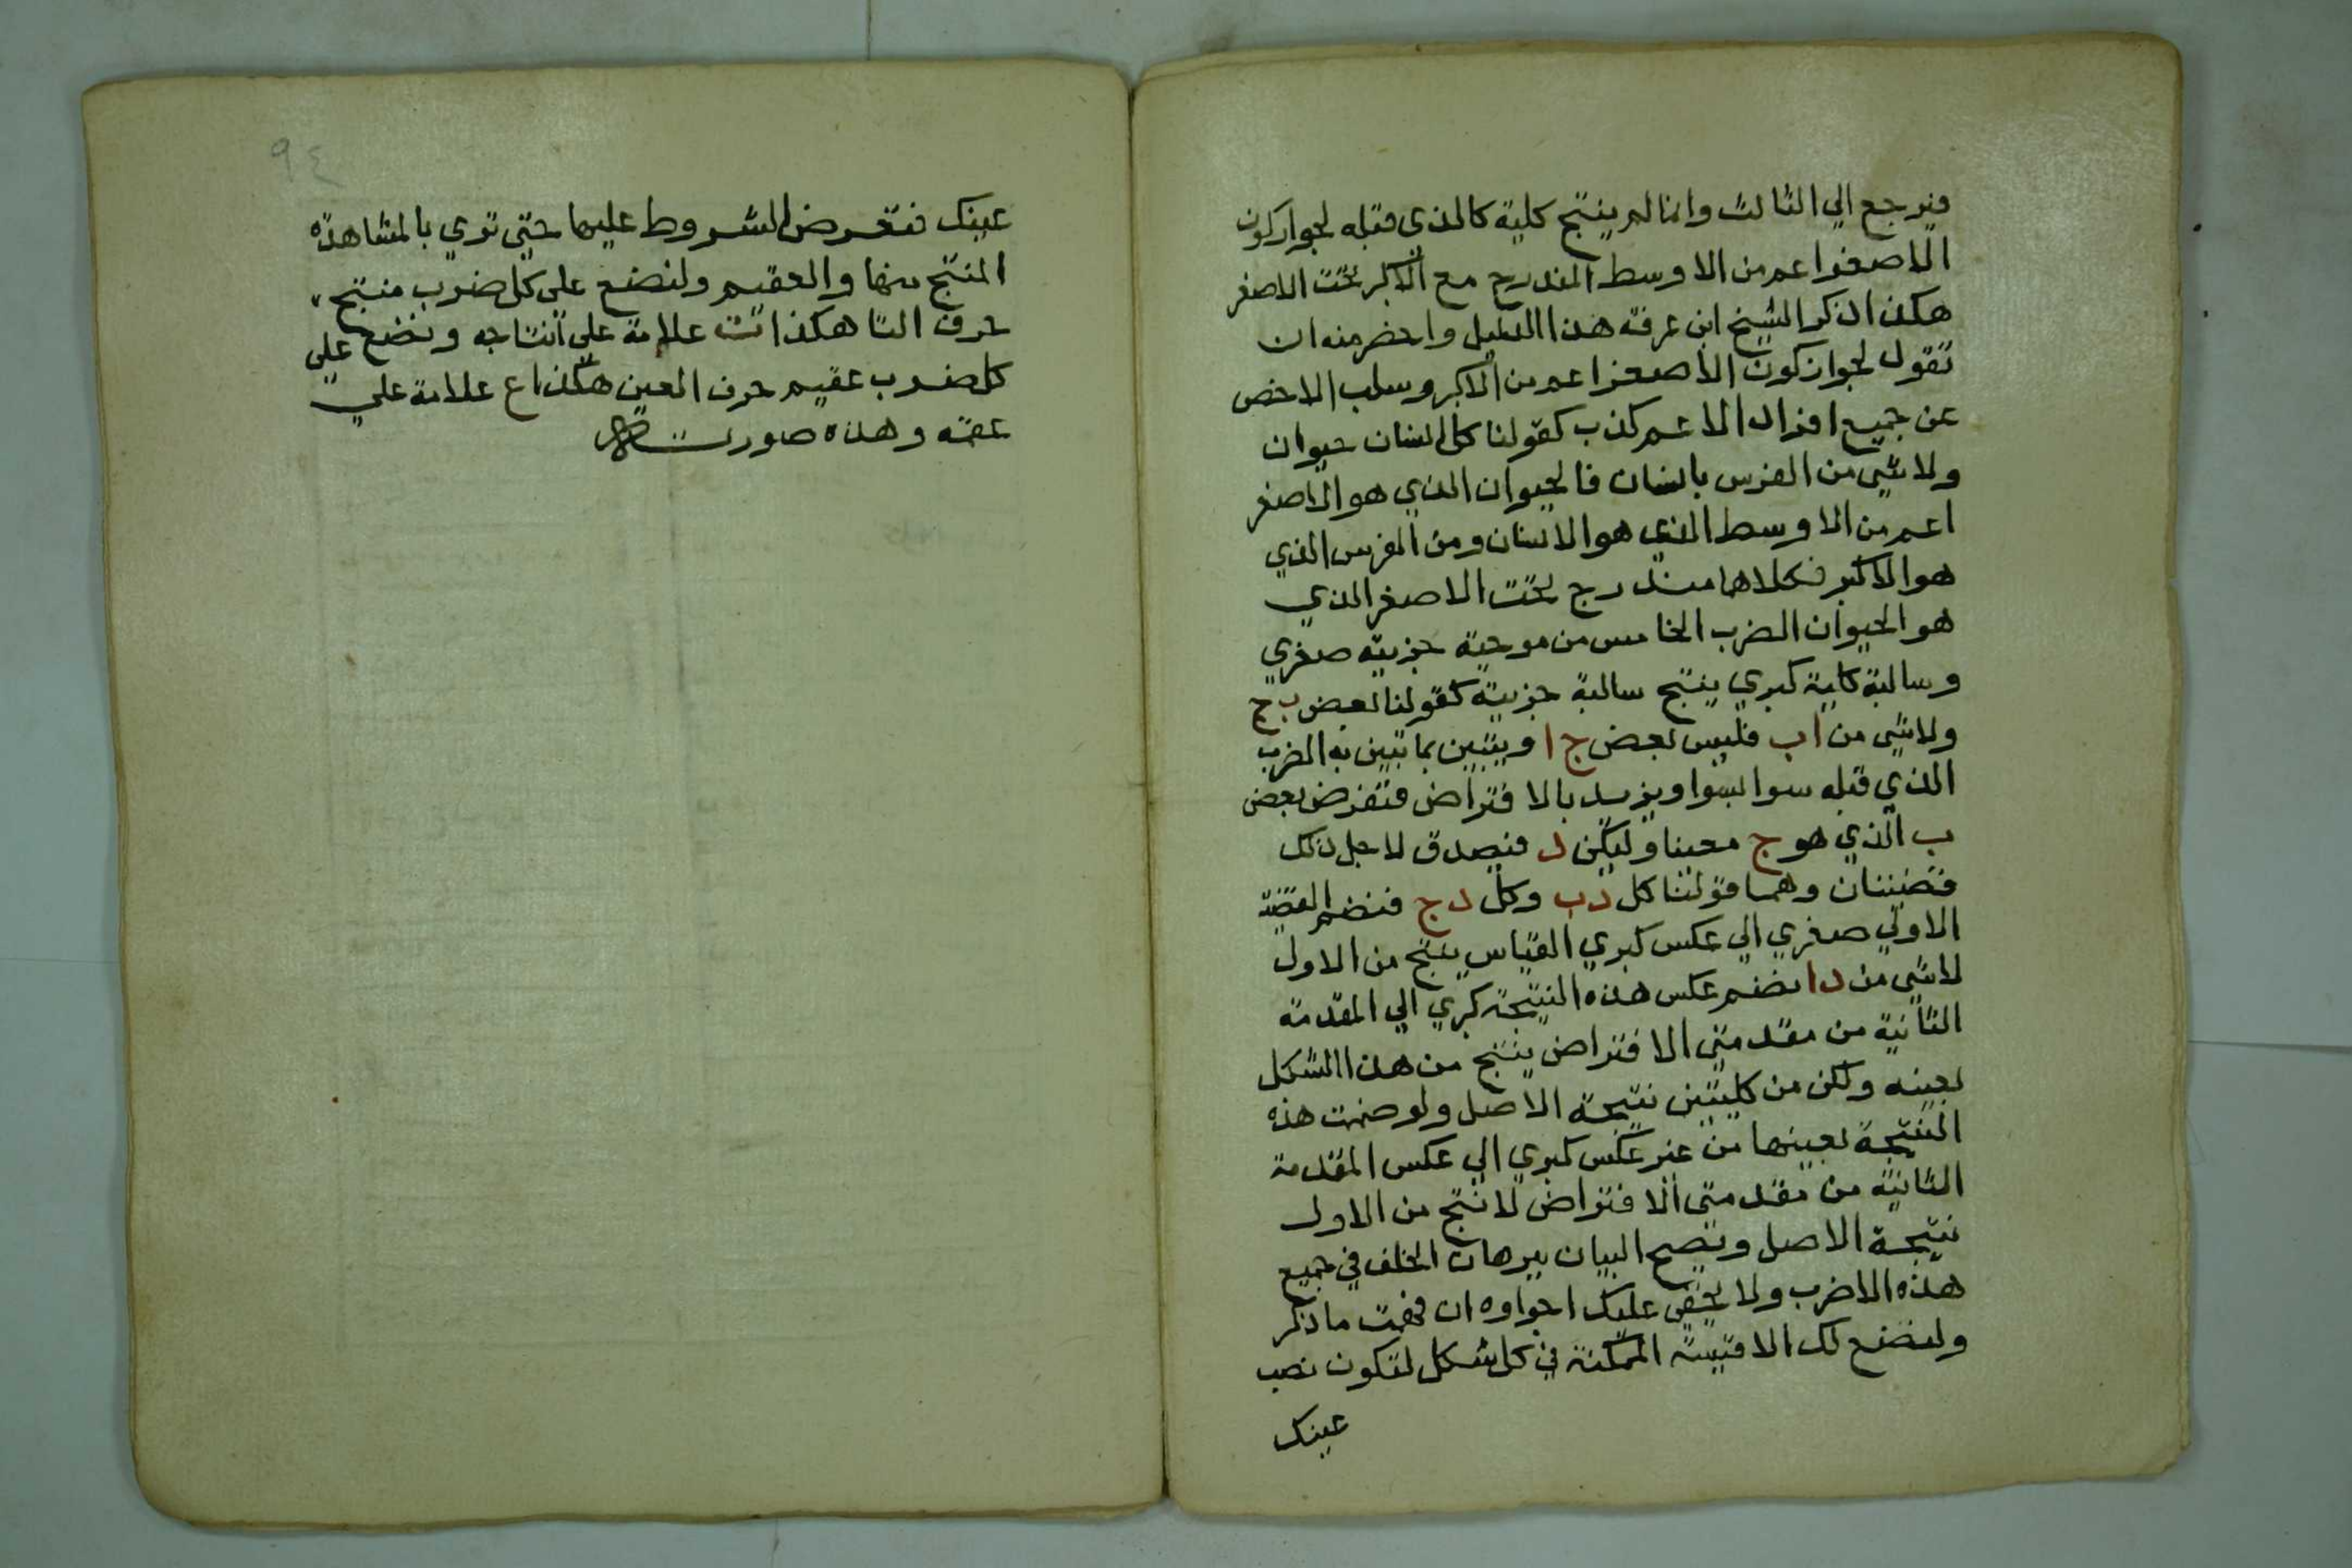 فيرجع الي الثالث وانما لم ينتج كلية كالذي قبله لجواز كون
الاصغر اعم من الاوسط المندرج مع الاكبر تحت الاصغر
هكذا ذكر الشيخ ابن عرفة هذا الدليل واخضر منه ان
تقول لجواز كون الاصغر اعم من الاكبر وسلب الاخص
عن جميع افراد الاعم كذب كقولنا كل انسان حيوان
ولا شي من الفرس بانسان فالحيوان الذي هو الاصغر
اعم من الاوسط الذي هو الانسان ومن الفرس الذي
هو الاكبر فكلاهما مندرج تحت الاصغر الذي
هو الحيوان الضرب الخامس من موجبة جزيية صغري
وسالبة كلية كبري ينتج سالبة جزيية كقولنا بعض ب ج
ولا شي من ا ب فليس بعض ج ا ويتبين بما تبين به الضرب
الذي قبله سوا بسوا ويزيد بالافتراض فتفرض بعض
ب الذي هو ج معينا وليكن د فيصدق لاجل ذلك
قضيتان وهما قولنا كل د ب وكل د ج فنضم القضية
الاولي صغري الي عكس كبري القياس ينتج من الاول
لا شي من د ا نضم عكس هذه النتيجة كبري الي المقدمة
الثانية من مقدمتي الافتراض ينتج من هذا الشكل
بعينه ولكن من كليتين نتيجة الاصل ولو ضمت هذه
النتيجة بعينها من غير عكس كبري الي عكس المقدمة
الثانية من مقدمتي الافتراض لانتج من الاول
نتيجة الاصل ويصح البيان ببرهان الخلف في جميع
هذه الاضرب ولا يخفي عليك اجراوه ان فهمت ما ذكر
ولنضع لك الاقيسة الممكنة في كل شكل لتكون نصب
عينك
٩٤
عينك فتعرض الشروط عليها حتي تري بالمشاهدة
المنتج منها والعقيم ولنضع علي كل ضرب منتج
حرف التا هكذا ت علامة علي انتاجه ونضع علي
كل ضرب عقيم حرف العين هكذا ع علامة علي
عقمه وهذه صورت